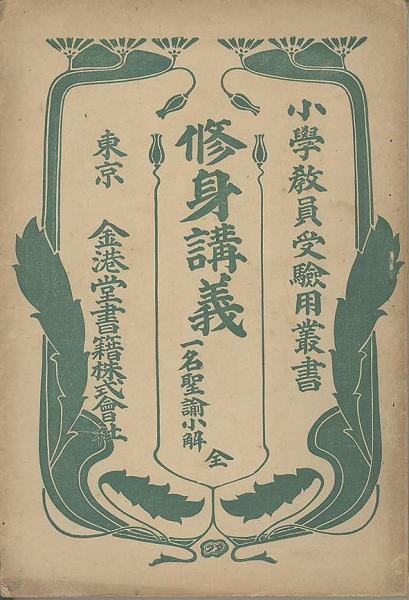 小學教員受驗用叢書
修身講義
一名聖諭小解
全
東京
金港堂書籍株式會社